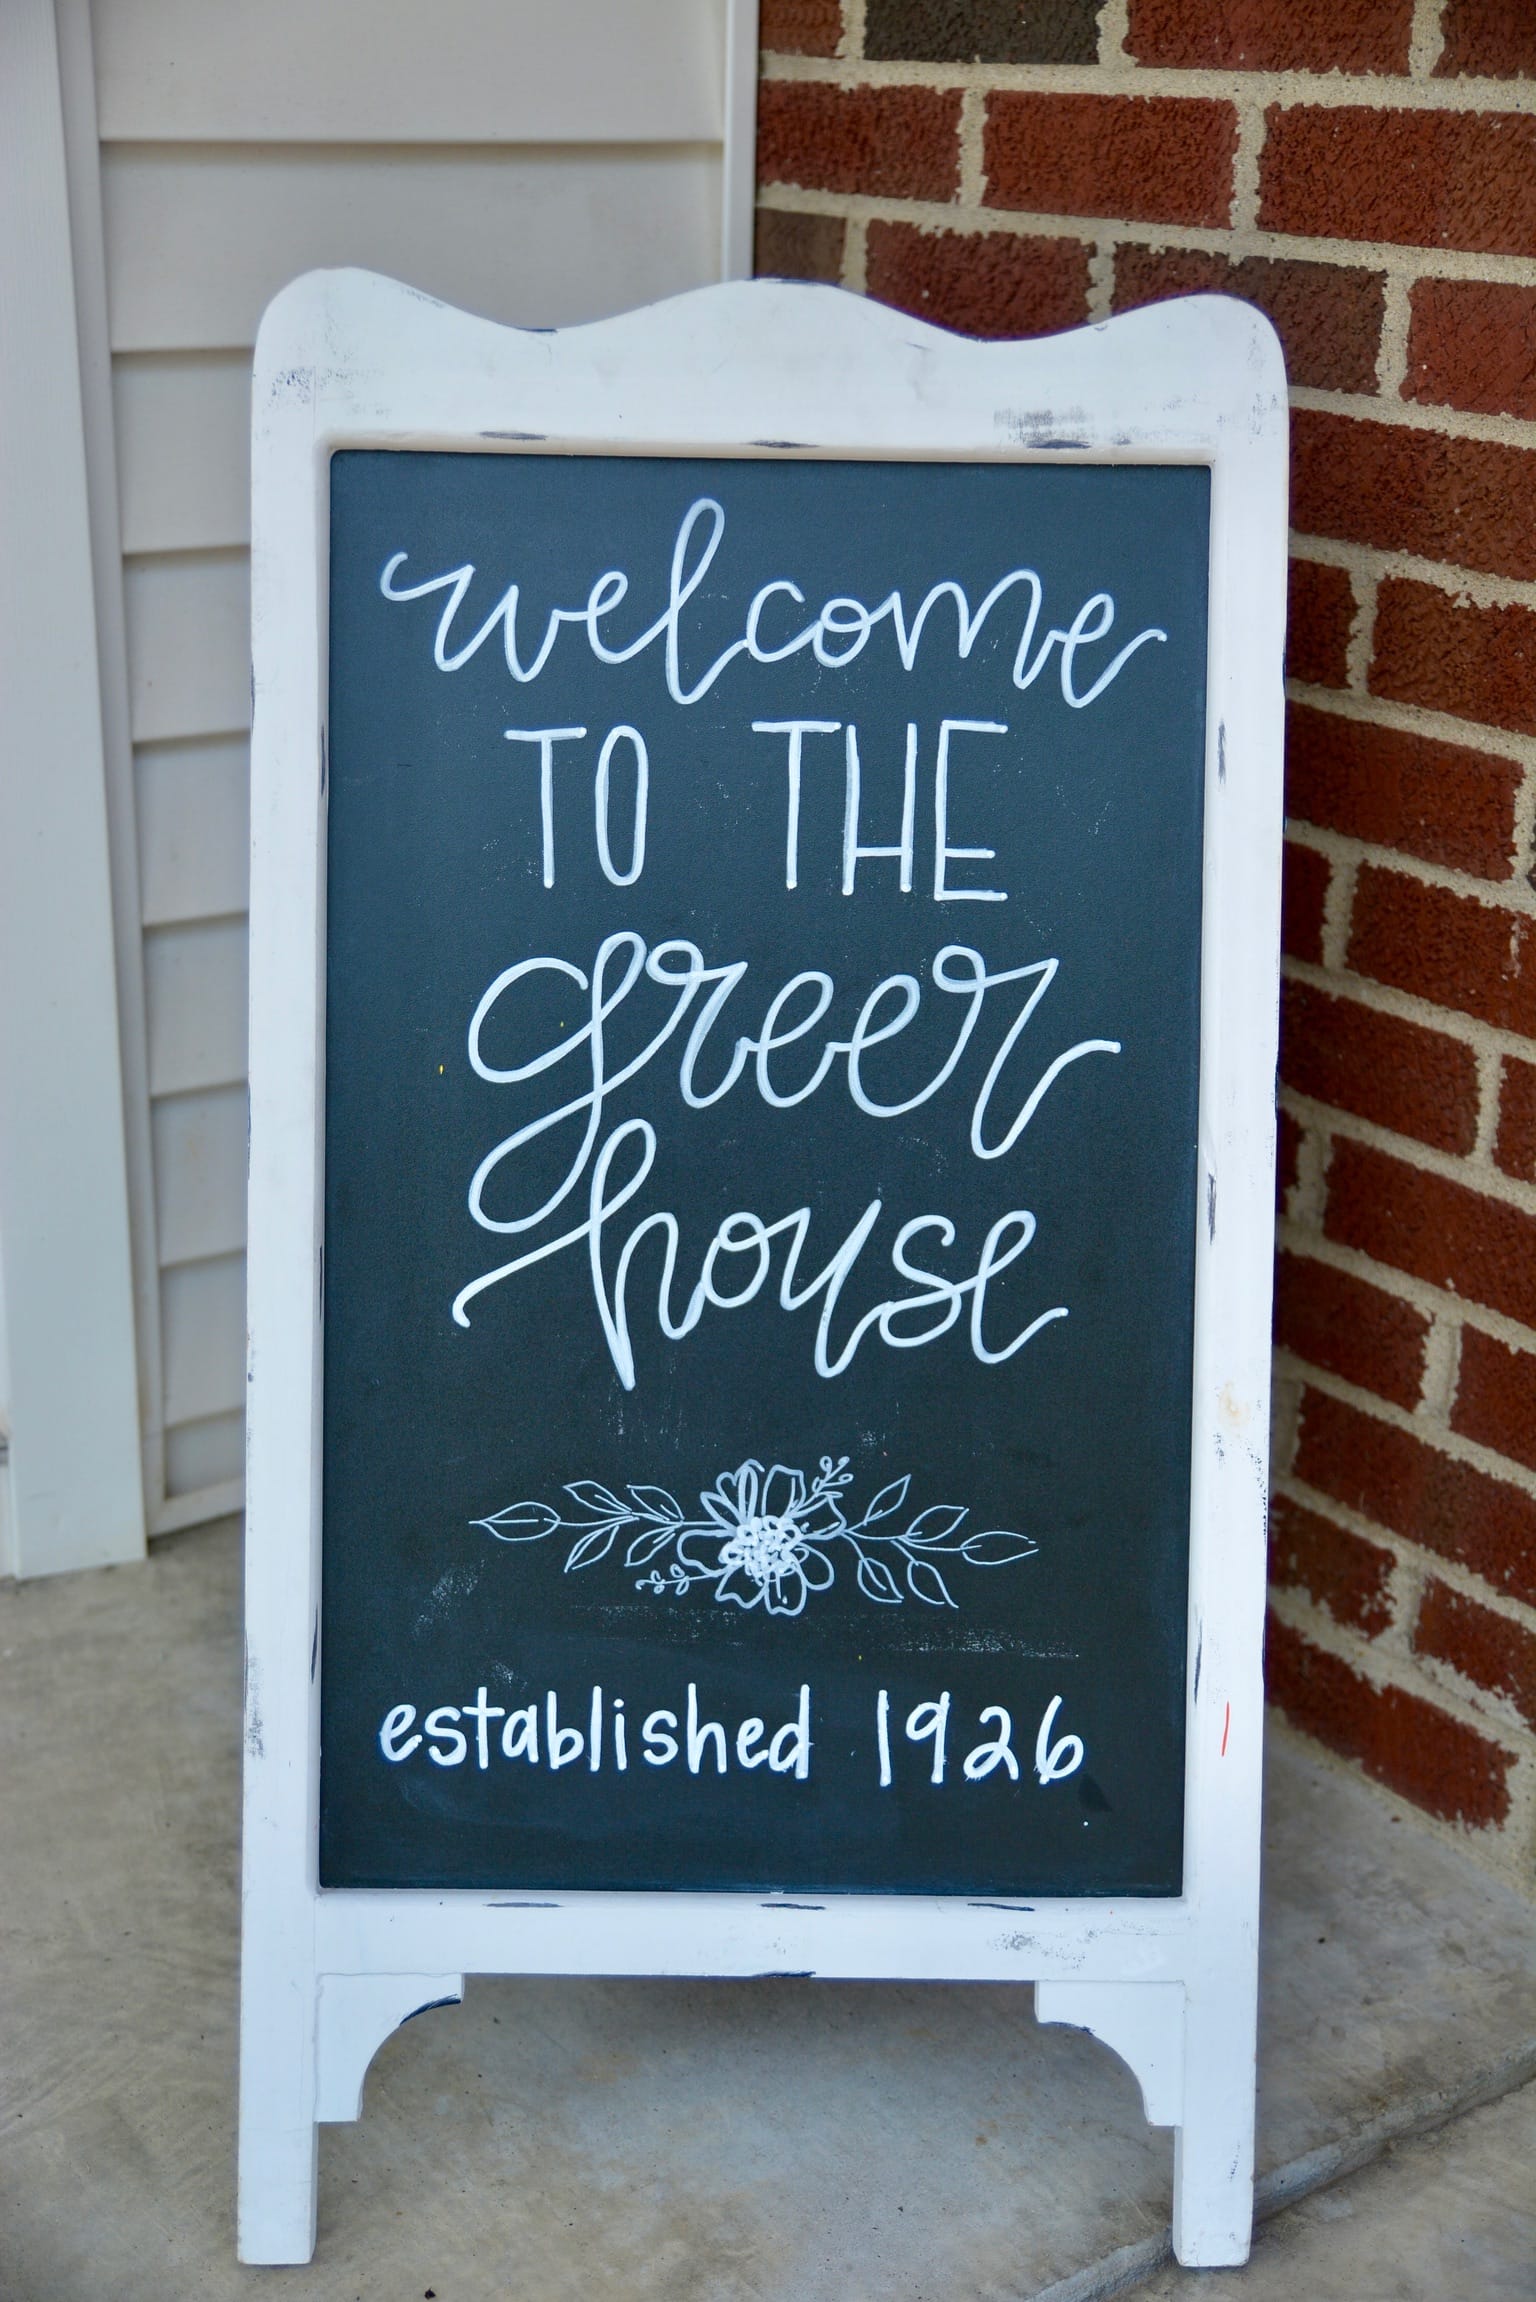 welcome
TO THE
Greer
house
established 1926